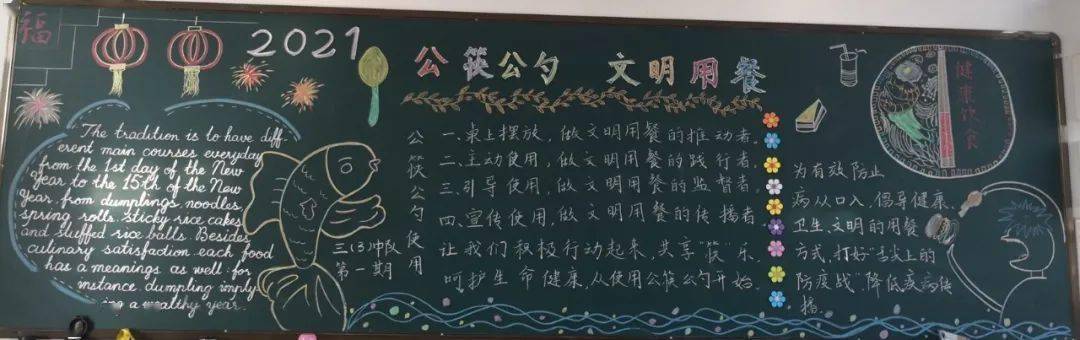 福
2021
The tradition is to have diff-
erent main courses everyday
from the 1st day of the New
year to the 15th of the New
Year, from dumplings, noodles,
spring rolls, sticky rice cakes
and stuffed rice balls. Besides
culinary satisfaction each food
has a meanings as well: for
instance, dumpling imply-
ing a wealthy year.
三(3)中队
第一期
公筷公勺 文明用餐
公筷公勺使用
一.桌上摆放,做文明用餐的推动者.
二.主动使用,做文明用餐的践行者.
三.引导使用,做文明用餐的监督者.
四.宣传使用,做文明用餐的传播者
让我们积极行动起来,共享“筷”乐.
呵护生命健康,从使用公筷公勺开始.
健康饮食
为有效防止
病从口入,倡导健康、
卫生、文明的用餐
方式,打好“舌尖上的
防疫战”,降低疫病传
播.